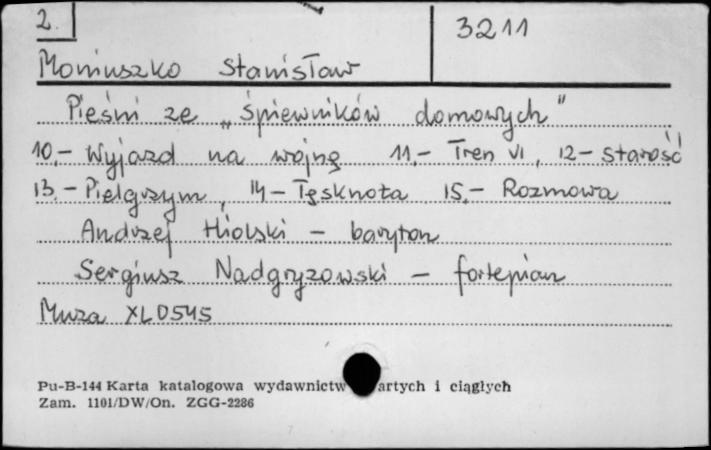 2. 3211
Moniuszko Stanisław
Pieśni ze „Śpiewników domowych"
10.- Wyjazd na wojnę 11.- Tren VI, 12- Starość
13.- Pielgrzym, 14- Tęsknota 15.- Rozmowa
Andrzej Hiolski - baryton
Sergiusz Nadgryzowski - fortepian
Muza XL0545
Pu-B-144 Karta katalogowa wydawnictw artych i ciągłych
Zam. 1101/DW/On. ZGG-2286